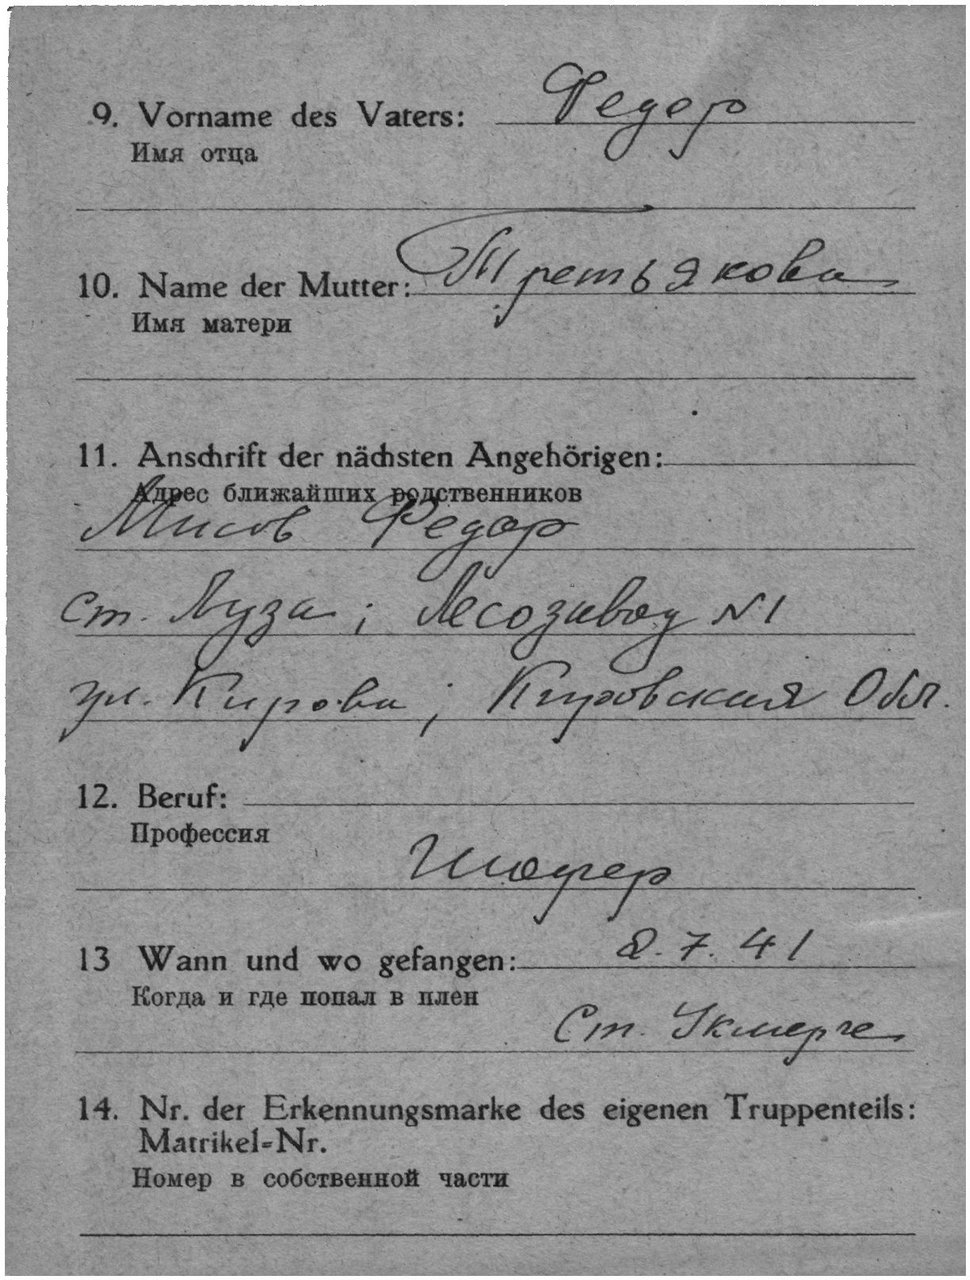 9. Vorname des Vaters: Федор
Имя отца
10. Name der Mutter: Третьякова
Имя матери
11. Anschrift der nächsten Angehörigen:
Адрес ближайших родственников
Мисов Федор
ст. Луза; Лесозавод №1
ул. Кирова; Кировская Обл.
12. Beruf:
Профессия
Шофер
13 Wann und wo gefangen: 2.7.41
Когда и где попал в плен
Ст. Укмерге
14. Nr. der Erkennungsmarke des eigenen Truppenteils:
Matrikel-Nr.
Номер в собственной части